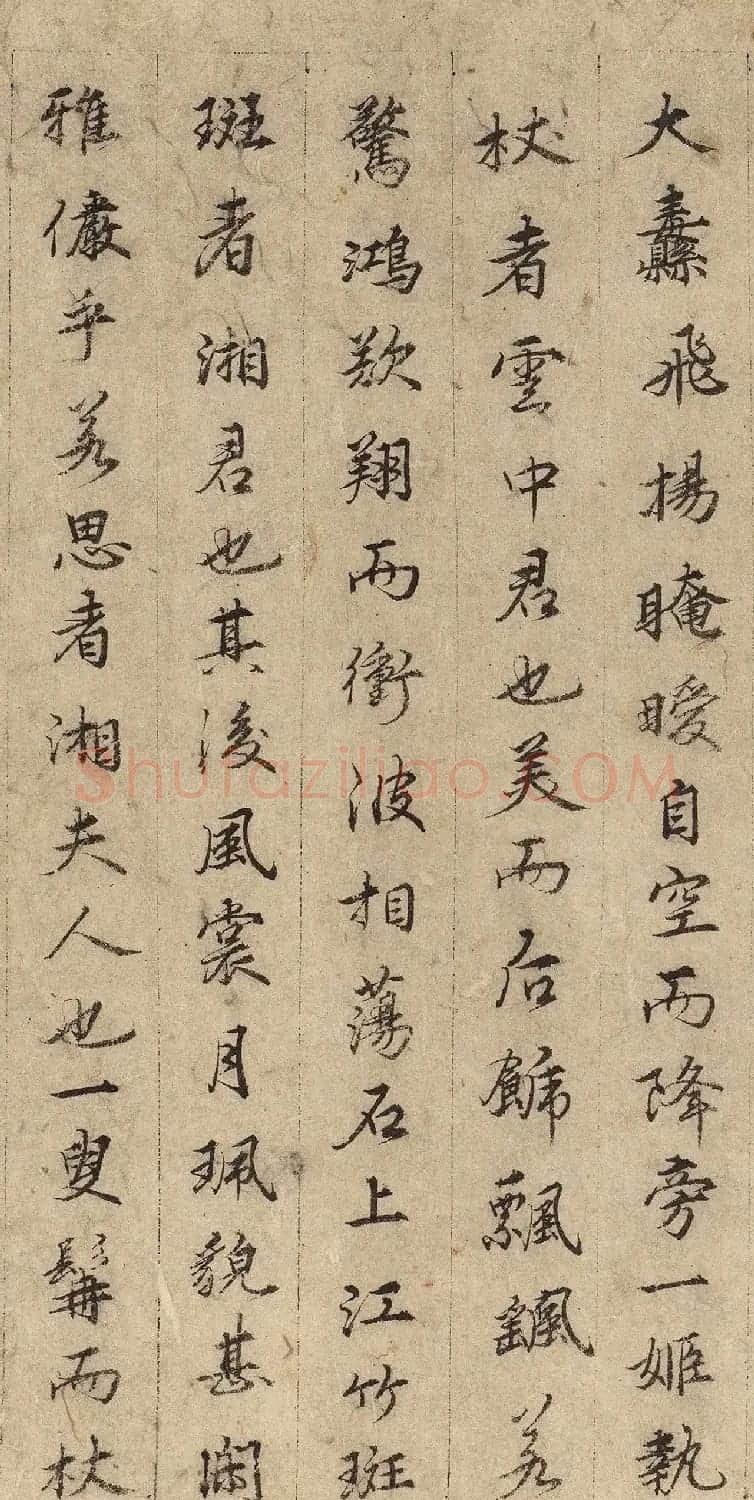 大纛飛揚晻曖自空而降旁一姬執
杖者雲中君也美而后飾飄颻若
驚鴻欲翔而衝波相蕩石上江竹斑
斑者湘君也其後風裳月珮貌甚閑
雅儼乎若思者湘夫人也一叟髯而杖
Shufaziliao.COM